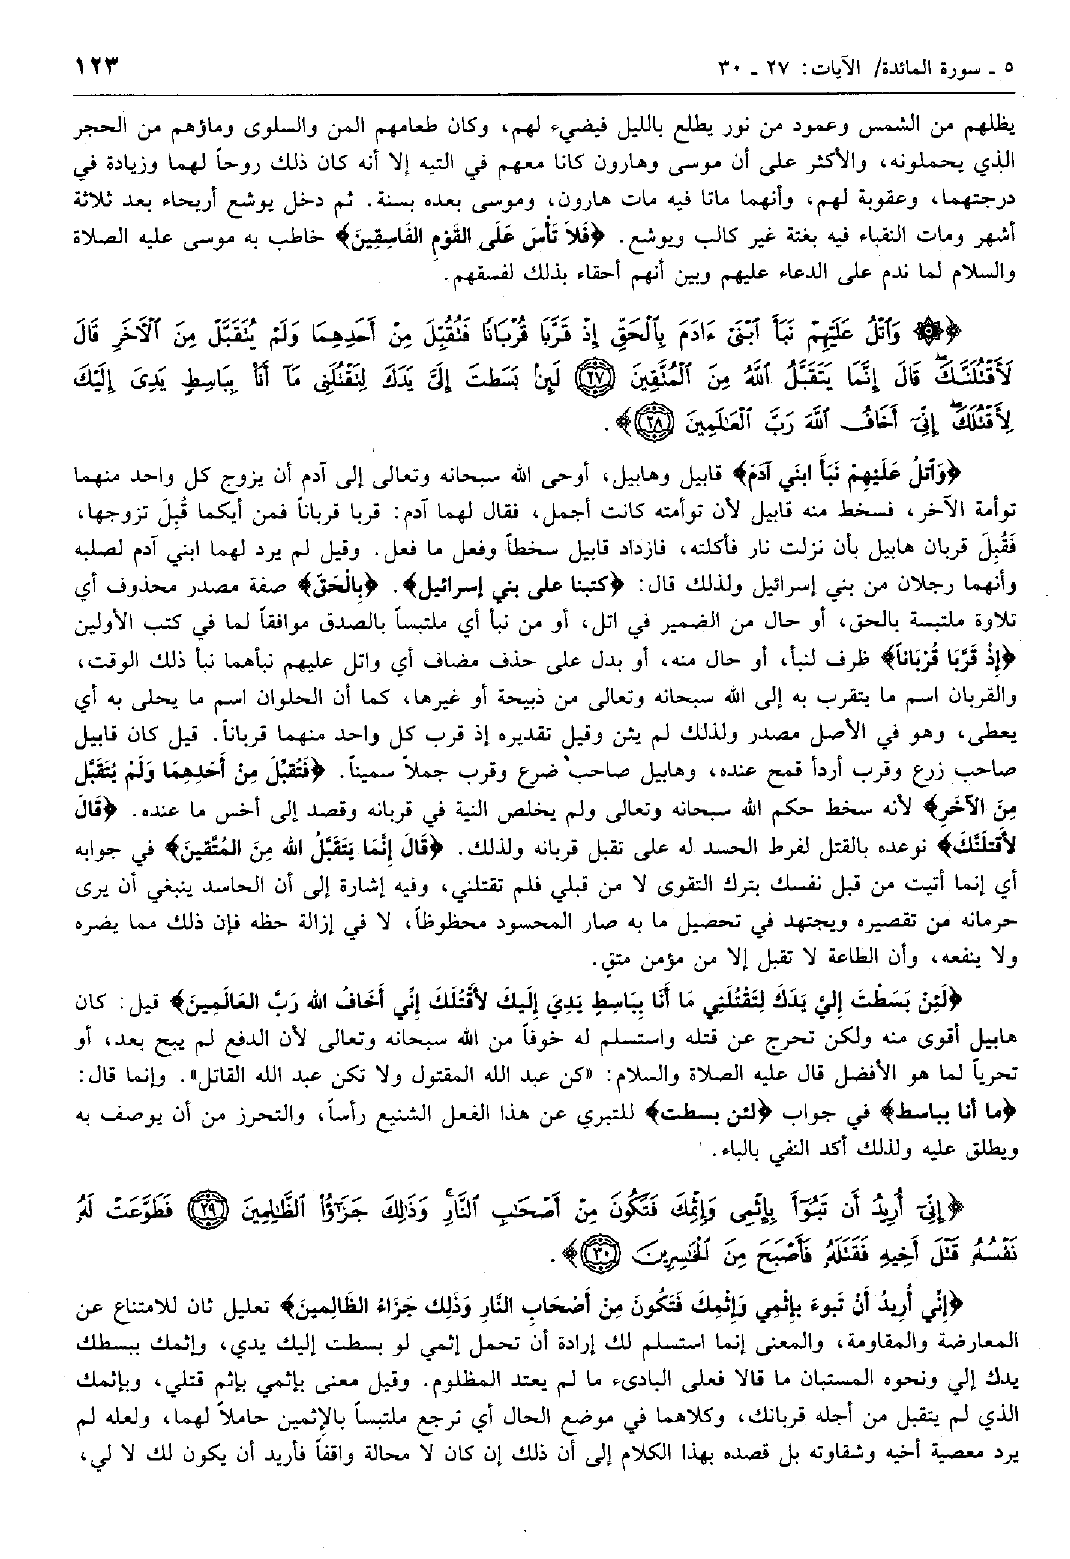 ٥ ـ سورة المائدة/ الآيات: ٢٧ ـ ٣٠ ١٢٣
يظلهم من الشمس وعمود من نور يطلع بالليل فيضيء لهم، وكان طعامهم المن والسلوى وماؤهم من الحجر
الذي يحملونه، والأكثر على أن موسى وهارون كانا معهم في التيه إلا أنه كان ذلك روحاً لهما وزيادة في
درجتهما، وعقوبة لهم، وأنهما ماتا فيه مات هارون، وموسى بعده بسنة. ثم دخل يوشع أريحاء بعد ثلاثة
أشهر ومات النقباء فيه بغتة غير كالب ويوشع. ﴿فَلاَ تَأْسَ عَلَى القَوْمِ الفَاسِقِينَ﴾ خاطب به موسى عليه الصلاة
والسلام لما ندم على الدعاء عليهم وبين أنهم أحقاء بذلك لفسقهم.
﴿۞ وَٱتْلُ عَلَيْهِمْ نَبَأَ ٱبْنَىْ ءَادَمَ بِٱلْحَقِّ إِذْ قَرَّبَا قُرْبَانًا فَتُقُبِّلَ مِنْ أَحَدِهِمَا وَلَمْ يُتَقَبَّلْ مِنَ ٱلْأَخَرِ قَالَ
لَأَقْتُلَنَّكَ قَالَ إِنَّمَا يَتَقَبَّلُ ٱللَّهُ مِنَ ٱلْمُتَّقِينَ ﴿٢٧﴾ لَئِنۢ بَسَطتَ إِلَىَّ يَدَكَ لِتَقْتُلَنِى مَآ أَنَا۠ بِبَاسِطٍ يَدِىَ إِلَيْكَ
لِأَقْتُلَكَ إِنِّىٓ أَخَافُ ٱللَّهَ رَبَّ ٱلْعَٰلَمِينَ ﴿٢٨﴾﴾.
﴿وَٱتلُ عَلَيْهِمْ نَبَأَ ابني آدَمَ﴾ قابيل وهابيل، أوحى الله سبحانه وتعالى إلى آدم أن يزوج كل واحد منهما
توأمة الآخر، فسخط منه قابيل لأن توأمته كانت أجمل، فقال لهما آدم: قربا قرباناً فمن أيكما قُبِلَ تزوجها،
فَقُبِلَ قربان هابيل بأن نزلت نار فأكلته، فازداد قابيل سخطاً وفعل ما فعل. وقيل لم يرد لهما ابني آدم لصلبه
وأنهما رجلان من بني إسرائيل ولذلك قال: ﴿كتبنا على بني إسرائيل﴾. ﴿بِالْحَقِّ﴾ صفة مصدر محذوف أي
تلاوة ملتبسة بالحق، أو حال من الضمير في اتل، أو من نبأ أي ملتبساً بالصدق موافقاً لما في كتب الأولين
﴿إِذْ قَرَّبَا قُرْبَاناً﴾ ظرف لنبأ، أو حال منه، أو بدل على حذف مضاف أي واتل عليهم نبأهما نبأ ذلك الوقت،
والقربان اسم ما يتقرب به إلى الله سبحانه وتعالى من ذبيحة أو غيرها، كما أن الحلوان اسم ما يحلى به أي
يعطى، وهو في الأصل مصدر ولذلك لم يثن وقيل تقديره إذ قرب كل واحد منهما قرباناً. قيل كان قابيل
صاحب زرع وقرب أردأ قمح عنده، وهابيل صاحب ضرع وقرب جملاً سميناً. ﴿فَتُقُبِّلَ مِنْ أَحَدِهِمَا وَلَمْ يُتَقَبَّلْ
مِنَ الآخَرِ﴾ لأنه سخط حكم الله سبحانه وتعالى ولم يخلص النية في قربانه وقصد إلى أخس ما عنده. ﴿قَالَ
لأَقتلَنَّكَ﴾ توعده بالقتل لفرط الحسد له على تقبل قربانه ولذلك. ﴿قَالَ إِنَّمَا يَتَقَبَّلُ الله مِنَ المُتَّقِينَ﴾ في جوابه
أي إنما أتيت من قبل نفسك بترك التقوى لا من قبلي فلم تقتلني، وفيه إشارة إلى أن الحاسد ينبغي أن يرى
حرمانه من تقصيره ويجتهد في تحصيل ما به صار المحسود محظوظاً، لا في إزالة حظه فإن ذلك مما يضره
ولا ينفعه، وأن الطاعة لا تقبل إلا من مؤمن متقٍ.
﴿لَئِنْ بَسَطْتَ إِليَّ يَدَكَ لِتَقْتُلَنِي مَا أَنَا بِبَاسِطٍ يَدِيَ إِلَيكَ لأَقْتُلَكَ إِنِّي أَخَافُ الله رَبَّ العَالَمِينَ﴾ قيل: كان
هابيل أقوى منه ولكن تحرج عن قتله واستسلم له خوفاً من الله سبحانه وتعالى لأن الدفع لم يبح بعد، أو
تحرياً لما هو الأفضل قال عليه الصلاة والسلام: «كن عبد الله المقتول ولا تكن عبد الله القاتل». وإنما قال:
﴿ما أنا بباسط﴾ في جواب ﴿لئن بسطت﴾ للتبري عن هذا الفعل الشنيع رأساً، والتحرز من أن يوصف به
ويطلق عليه ولذلك أكد النفي بالباء.
﴿إِنِّىٓ أُرِيدُ أَن تَبُوٓأَ بِإِثْمِى وَإِثْمِكَ فَتَكُونَ مِنْ أَصْحَٰبِ ٱلنَّارِ وَذَٰلِكَ جَزَٰٓؤُا۟ ٱلظَّٰلِمِينَ ﴿٢٩﴾ فَطَوَّعَتْ لَهُۥ
نَفْسُهُۥ قَتْلَ أَخِيهِ فَقَتَلَهُۥ فَأَصْبَحَ مِنَ ٱلْخَٰسِرِينَ ﴿٣٠﴾﴾.
﴿إِنِّي أُرِيدُ أَنْ تَبوءَ بِإِثْمِي وَإِثْمِكَ فَتَكُونَ مِنْ أَصْحَابِ النَّارِ وَذَلِكَ جَزَاءُ الظَّالِمِينَ﴾ تعليل ثان للامتناع عن
المعارضة والمقاومة، والمعنى إنما استسلم لك إرادة أن تحمل إثمي لو بسطت إليك يدي، وإثمك ببسطك
يدك إلي ونحوه المستبان ما قالا فعلى البادىء ما لم يعتد المظلوم. وقيل معنى بإثمي بإثم قتلي، وبإثمك
الذي لم يتقبل من أجله قربانك، وكلاهما في موضع الحال أي ترجع ملتبساً بالإثمين حاملاً لهما، ولعله لم
يرد معصية أخيه وشقاوته بل قصده بهذا الكلام إلى أن ذلك إن كان لا محالة واقعاً فأريد أن يكون لك لا لي،